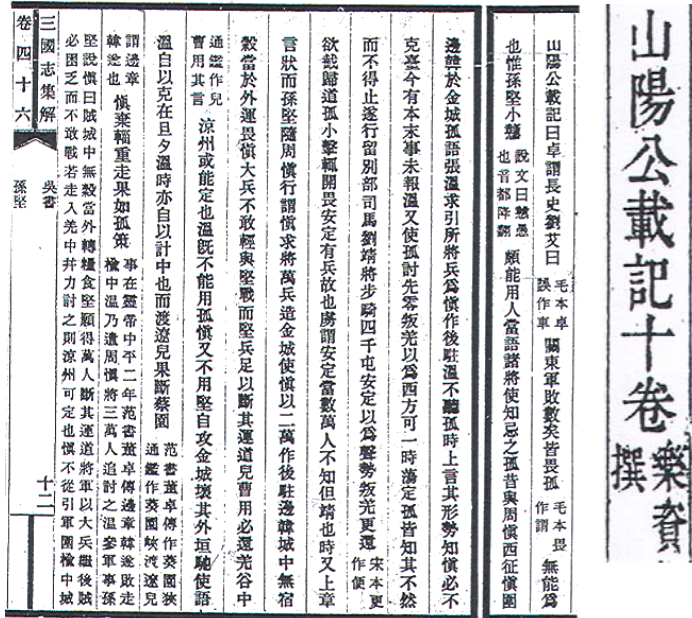 山陽公載記十卷
樂資撰
山陽公載記曰卓謂長史劉艾曰毛本卓誤作車關東軍敗數矣皆畏孤毛本畏作謂無能爲
也惟孫堅小戇說文曰戇愚也音都降翻頗能用人當語諸將使知忌之孤昔與周愼西征愼圍
邊韓於金城孤語張溫求引所將兵爲愼作後駐溫不聽孤時上言其形勢知愼必不
克臺今有本末事未報溫又使孤討先零叛羌以爲西方可一時蕩定孤皆知其不然
而不得止遂行留別部司馬劉靖將步騎四千屯安定以爲聲勢叛羌更還宋本更作便
欲截歸道孤小擊輒開畏安定有兵故也虜謂安定當數萬人不知但靖也時又上章
言狀而孫堅隨周愼行謂愼求將萬兵造金城使愼以二萬作後駐邊韓城中無宿
穀當於外運畏愼大兵不敢輕與堅戰而堅兵足以斷其運道兒曹用必還羌谷中
通鑑作兒曹用其言涼州或能定也溫旣不能用孤愼又不用堅自攻金城壞其外垣馳使語
溫自以克在旦夕溫時亦自以計中也而渡遼兒果斷蔡園范書董卓傳作葵園狹通鑑作葵園峽渡遼兒
謂邊章韓遂也愼棄輜重走果如孤策事在靈帝中平二年范書董卓傳邊章韓遂敗走楡中溫乃遣周愼將三萬人追討之溫參軍事孫
堅說愼曰賊城中無穀當外轉糧食堅願得萬人斷其運道將軍以大兵繼後賊
必困乏而不敢戰若走入羌中并力討之則涼州可定也愼不從引軍圍楡中城
三國志集解
卷四十六
吳書
孫堅
十二